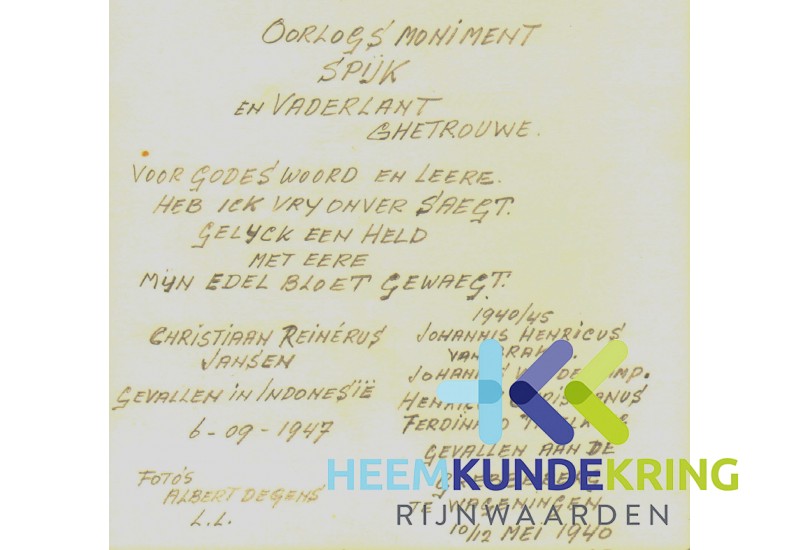 OORLOGS MONIMENT
SPIJK
EN VADERLANT
GHETROUWE.
VOOR GODES WOORD EN LEERE.
HEB ICK VRY ONVER SAEGT.
GELYCK EEN HELD
MET EERE
MIJN EDEL BLOET GEWAEGT.
CHRISTIAAN REINÉRUS
JANSEN
GEVALLEN IN INDONESIË
6-09-1947
FOTO'S
ALBERT DEGENS
L.L.
1940/45
JOHANNIS HENRICUS
VAN
JOHANNIS
FERDINAND
GEVALLEN AAN DE
TE WAGENINGEN
10/12 MEI 1940
HEEMKUNDEKRING
RIJNWAARDEN